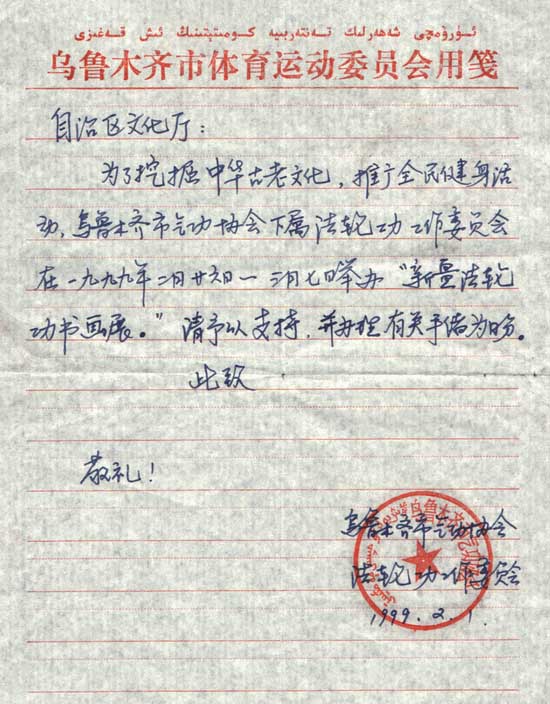 ئۈرۈمچى شەھەرلىك تەنتەربىيە كومىتېتىنىڭ ئىش قەغىزى
乌鲁木齐市体育运动委员会用笺
自治区文化厅：
为了挖掘中华古老文化，推广全民健身活
动，乌鲁木齐市气功协会下属法轮功工作委员会
在一九九九年二月廿六日一三月七日举办“新疆法轮
功书画展。”请予以支持，并办理有关手续为盼。
此致
敬礼！
乌鲁木齐市气功协会
法轮功工作委员会
1999.2.1.